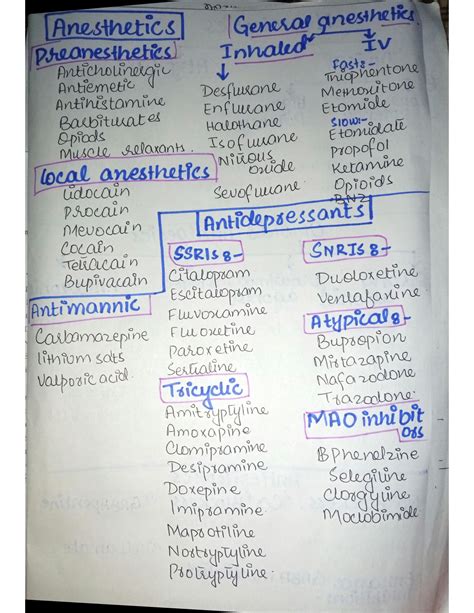 Anesthetics
Preanesthetics
Anticholinergic
Antiemetic
Antihistamine
Barbiturates
Opiods
Muscle relaxants.
Local anesthetics
Lidocain
Procain
Mevocain
Cocain
Tetracain
Bupivacain
Antimannic
Carbamazepine
lithium salts
Valporic acid.
General anesthetics
Inhaled
Desflurane
Enflurane
Halothane
Isoflurane
Nitrous
oxide
Sevoflurane
IV
Fast:-
Thiophentone
Methoxitone
Etomide
Slow:-
Etomidate
Propofol
Ketamine
Opioids
BNZ
Antidepressants
SSRIs :-
Citalopram
Escitalopram
Fluvoxamine
Fluoxetine
Paroxetine
Sertraline
Tricyclic
Amitryptyline
Amoxapine
Clomipramine
Desipramine
Doxepine
Imipramine
Maprotiline
Nortryptyline
Protryptyline.
SNRIs :-
Duoloxetine
Venlafaxine
Atypical :-
Bupropion
Mirtazapine
Nafazodone
Trazodone.
MAO inhibit
ors
Phenelzine
Selegiline
Clorgyline
Moclobimide